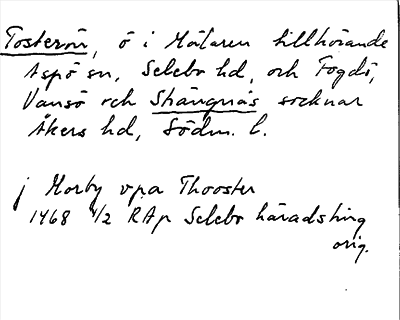 Tosterön, ö i Mälaren tillhörande
Aspö sn, Selebo hd, och Fogdö,
Vansö och Strängnäs socknar
Åkers hd, Södm. l.
j Morby vpa Thooster
1468 4/2 RAp Selebo häradsting
orig.